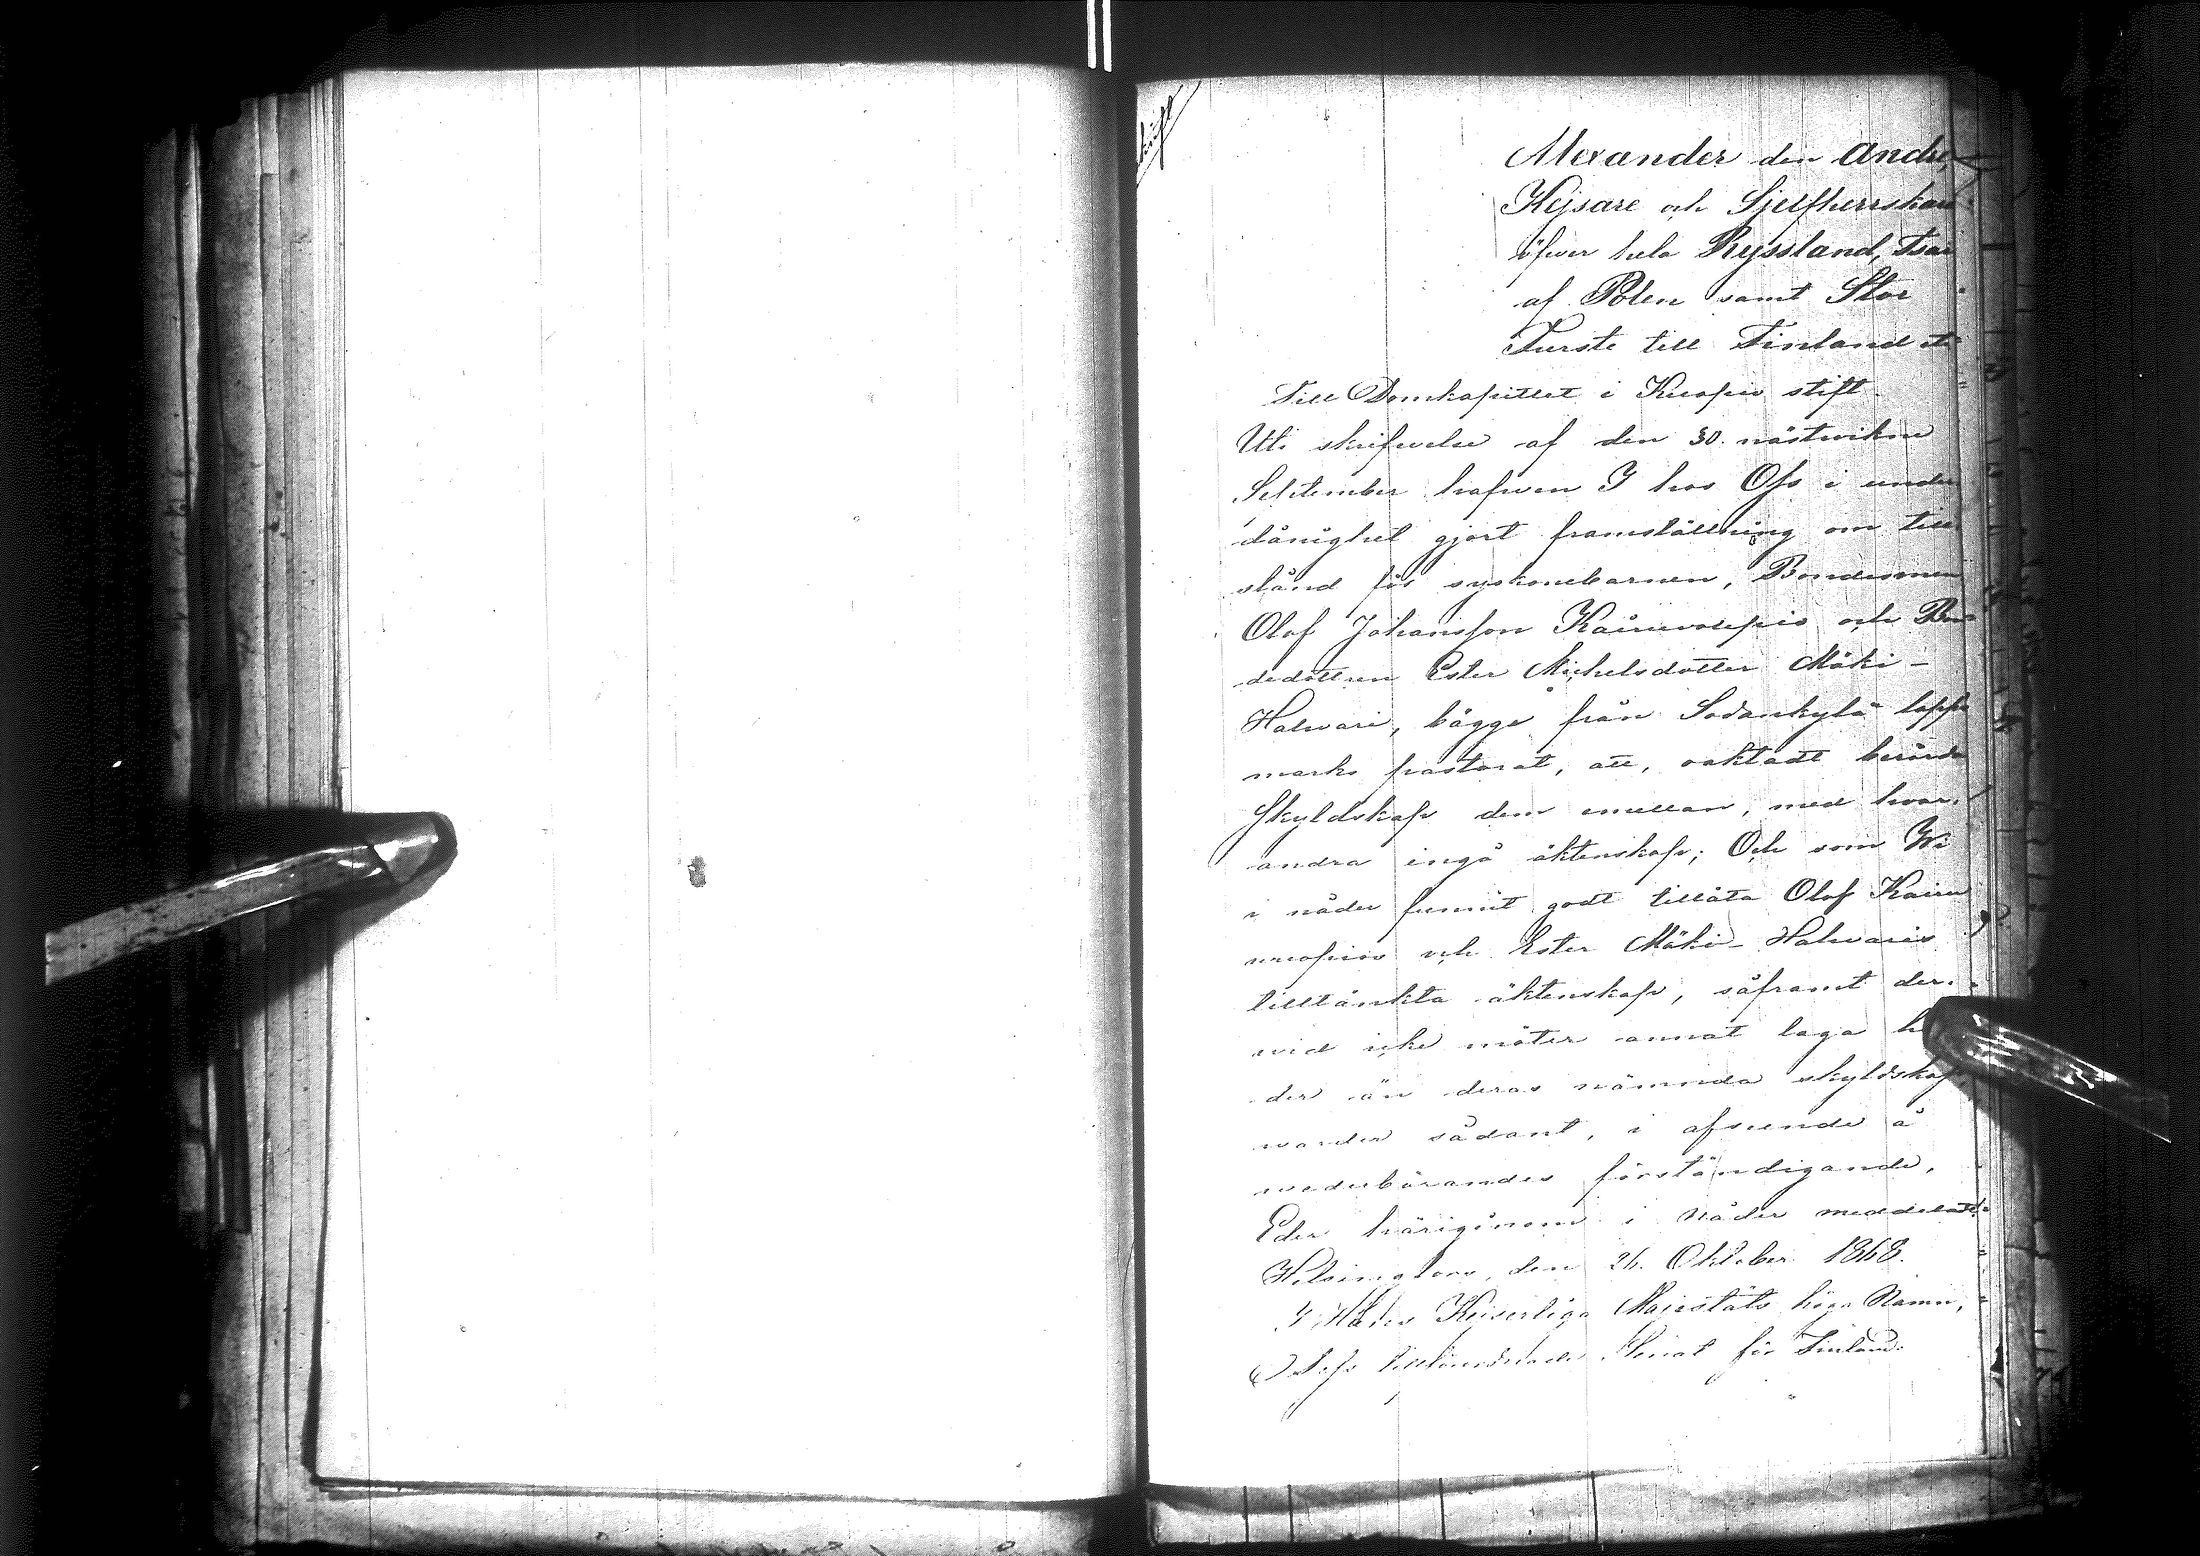 Alexander den Andre,
Kejsare och Sjelfherrskare
öfver hela Ryssland, Tsar
af Polen samt Stor
Furste till Finland etc
Till Domkapitlet i Kuopio stift.
Uti skrifvelse af den 30. nästvikne
September hafven I hos Oss i under
dånighet gjort framställning om till
stånd för syskonebarnen, Bondesonen
Olof Johansson Kairivuopio och Bon
dedottren Ester Michelsdotter Mäki-
Halvari, bägge från Sodankylä lapp
marks pastorat, att, oaktadt berörde
Skyldskap dem emellan, med hvar
andra ingå äktenskap; Och som Wi
i nåder funnit godt tillåta Olof Kairi
vuopios och Ester Mäki-Halvaris
tilltänkta äktenskap, såframt der
vid icke möter annat laga hin
der än deras nämnda skyldskap,
varder sådant, i afseende å
vederbörandes förständigande,
Eder härigenom i nåder meddeladt.
Helsingfors, den 26. Oktober 1868.
I Hans Kejserliga Majestäts höga Namn,
Dess tillförordnade Senat för Finland.